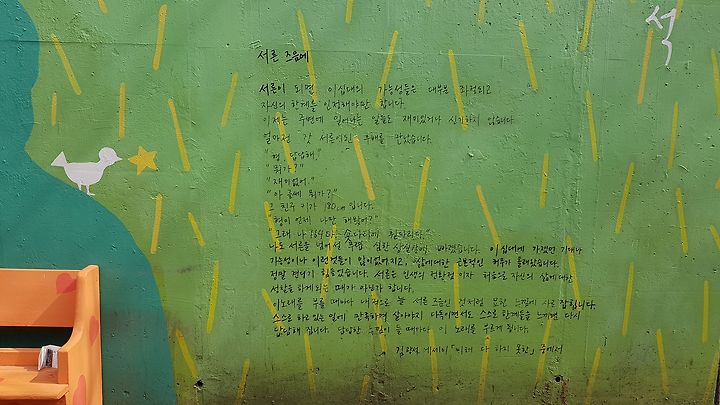 석
서른 즈음에
서른이 되면 이십대의 가능성들은 대부분 좌절되고
자신의 한계를 인정해야만 합니다.
이제는 주변에 일어나는 일들도 재미있거나 신기하지 않습니다.
얼마전 갓 서른이된 후배를 만났습니다.
"형, 답답해."
"뭐가?"
"재미없어."
"아 글쎄 뭐가?"
그 친구 키가 180cm입니다.
"형이 언제 나만 해봤어?"
"그래 나 164다. 숏다리에 휜다리다."
나도 서른을 넘어설 무렵 심한 상실감에 빠졌습니다. 이십대에 가졌던 기대나
가능성이나 이런것들이 많이 없어지고, 삶에대한 근본적인 허무가 몰려왔습니다.
정말 견디기 힘들었습니다. 서른은 인생의 전환점이자 처음으로 자신의 삶에대한
성찰을 하게되는 때가 아닌가 합니다.
이노래를 부를 때마다 내적으로 늘 서른 즈음인 것처럼 묘한 느낌에 사로 잡힙니다.
스스로 하고 있는 일에 만족하며 살아야지 다독이면서도 스스로 한계들을 느끼면 다시
답답해 집니다. 답답한 느낌이 들 때마다 이 노래를 부르게 됩니다.
김광석 에세이 「미처 다 하지 못한」 중에서